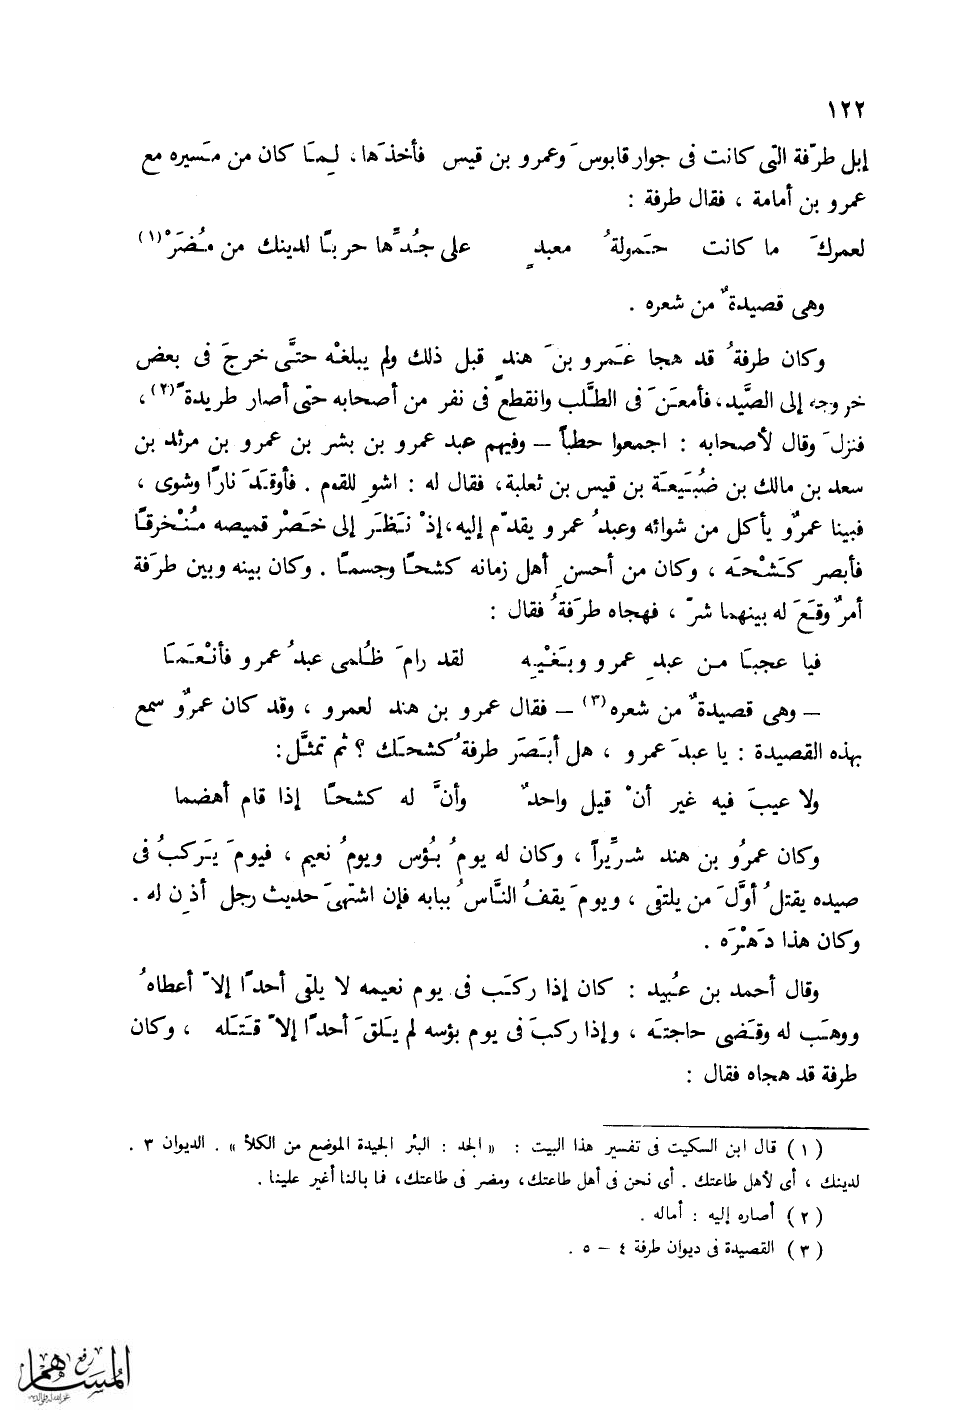 ١٢٢
إبل طرَفة التى كانت فى جوار قابوسَ وعمرو بن قيس فأخذَها، لِمَا كان من مَسيره مع
عمرو بن أمامة ، فقال طرفة :
لعمركَ ما كانت حَمولةُ معبدٍ على جُدِّها حربًا لدينك من مُضَرْ(١)
وهى قصيدةٌ من شعره .
وكان طرفةُ قد هجا عَمرو بنَ هندٍ قبل ذلك ولم يبلغْه حتَّى خرجَ فى بعض
خروجه إلى الصَّيد، فأمعَنَ فى الطَّلب وانقطع فى نفر من أصحابه حتى أصار طريدةً(٢)،
فنزلَ وقال لأصحابه : اجمعوا حطباً – وفيهم عبد عمرو بن بشر بن عمرو بن مرثد بن
سعد بن مالك بن ضُبَيعة بن قيس بن ثعلبة، فقال له : اشوِ للقوم . فأوقَدَ نارًا وشوى ،
فبينا عمرٌو يأكل من شوائه وعبدُ عمرو يقدّم إليه، إذْ نَظَر إلى خَصْر قميصه مُنْخرقًا
فأبصر كَشْحَه ، وكان من أحسنِ أهل زمانه كشحًا وجسمًا . وكان بينه وبين طرَفة
أمرٌ وقَعَ له بينهما شرّ ، فهجاه طرَفةُ فقال :
فيا عجبَا من عبدِ عمرو وبَغْيِه لقد رامَ ظُلمى عبدُ عمرو فأنْعَمَا
– وهى قصيدةٌ من شعره(٣) – فقال عمرو بن هند لعمرو ، وقد كان عمرٌو سمع
بهذه القصيدة : يا عبدَ عمرو ، هل أبصَرَ طرفةُ كشحَك ؟ ثم تمثَّل:
ولا عيبَ فيه غير أنْ قيل واحدٌ وأنَّ له كشحًا إذا قام أهضما
وكان عمرُو بن هند شرِّيراً ، وكان له يومُ بُؤس ويومُ نعيم ، فيومَ يَركبُ فى
صيده يقتلُ أوَّلَ من يلتقى ، ويومَ يقفُ النَّاسُ ببابه فإن اشتهىَ حديث رجل أذِن له .
وكان هذا دَهْرَه .
وقال أحمد بن عُبيد : كان إذا ركَب فى يوم نعيمه لا يلقى أحدًا إلاّ أعطاهُ
ووهَب له وقَضى حاجتَه ، وإذا ركبَ فى يوم بؤسه لم يَلقَ أحدًا إلاّ قَتَله ، وكان
طرفة قد هجاه فقال :
(١) قال ابن السكيت فى تفسير هذا البيت : « الجد : البئر الجيدة الموضع من الكلأ » . الديوان ٣ .
لدينك ، أى لأهل طاعتك . أى نحن فى أهل طاعتك، ومضر فى طاعتك، فما بالنا أغير علينا .
(٢) أصاره إليه : أماله .
(٣) القصيدة فى ديوان طرفة ٤ – ٥ .